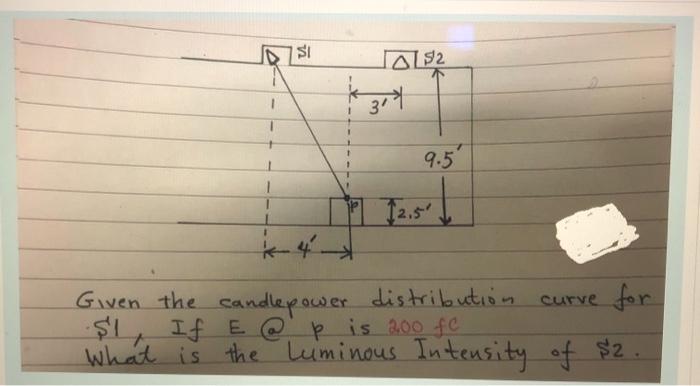 S1
S2
3'
9.5'
P
2.5'
4'
Given the candlepower distribution curve for
S1, If E @ p is 200 fc
What is the Luminous Intensity of S2.